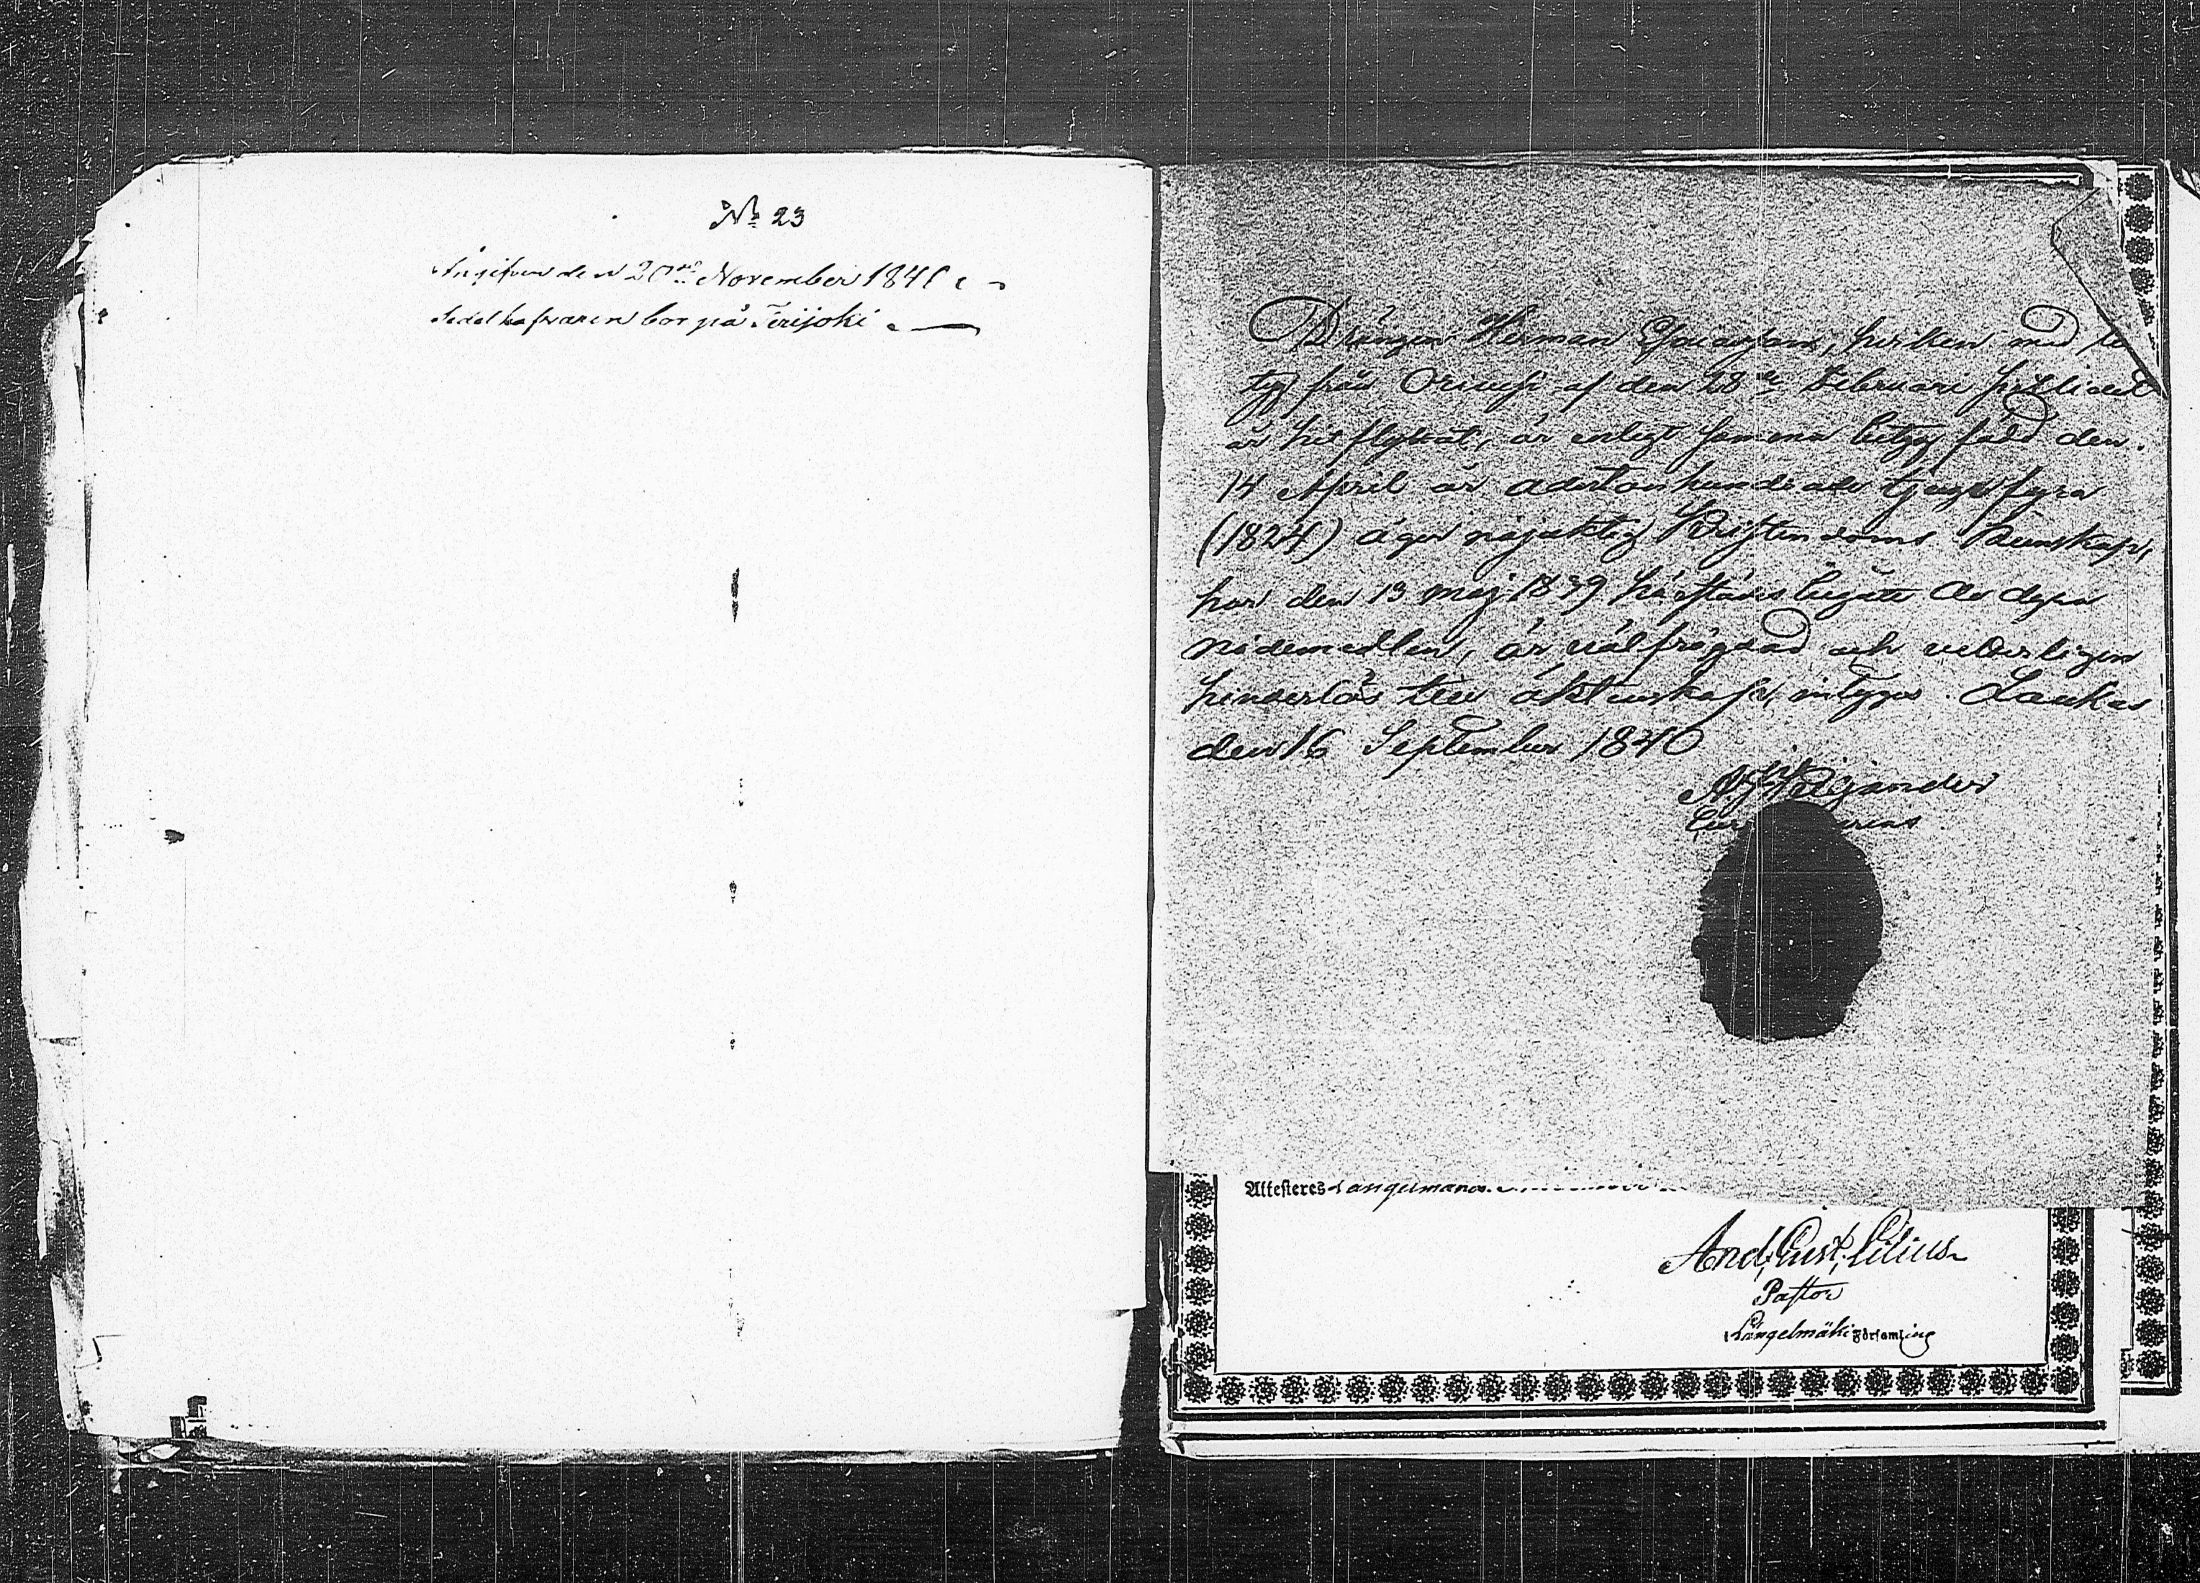 № 23
Angifven den 20de November 1840
Sedelhafvaren bor på Terijoki
Drängen Herman Esaiasson, hvilken med be
tyg från Orivesi af den 28de Februari
år hit flyttat, är enligt samma betyg född den
14 April år adertonhundrade tjugufyra
(1824) äger nöjaktig Kristendoms Kunskap,
har den 13 maj 1839 härstädes begått de dyra
nådemedlen, är välfrägdad och veterligen
hinderlös till äktenskap, intygar. Laukas
den 16 September 1840
A. J. Weijander
Attesteres Längelmäki
And. Gust. Lilius
Pastor
Längelmäki Församling